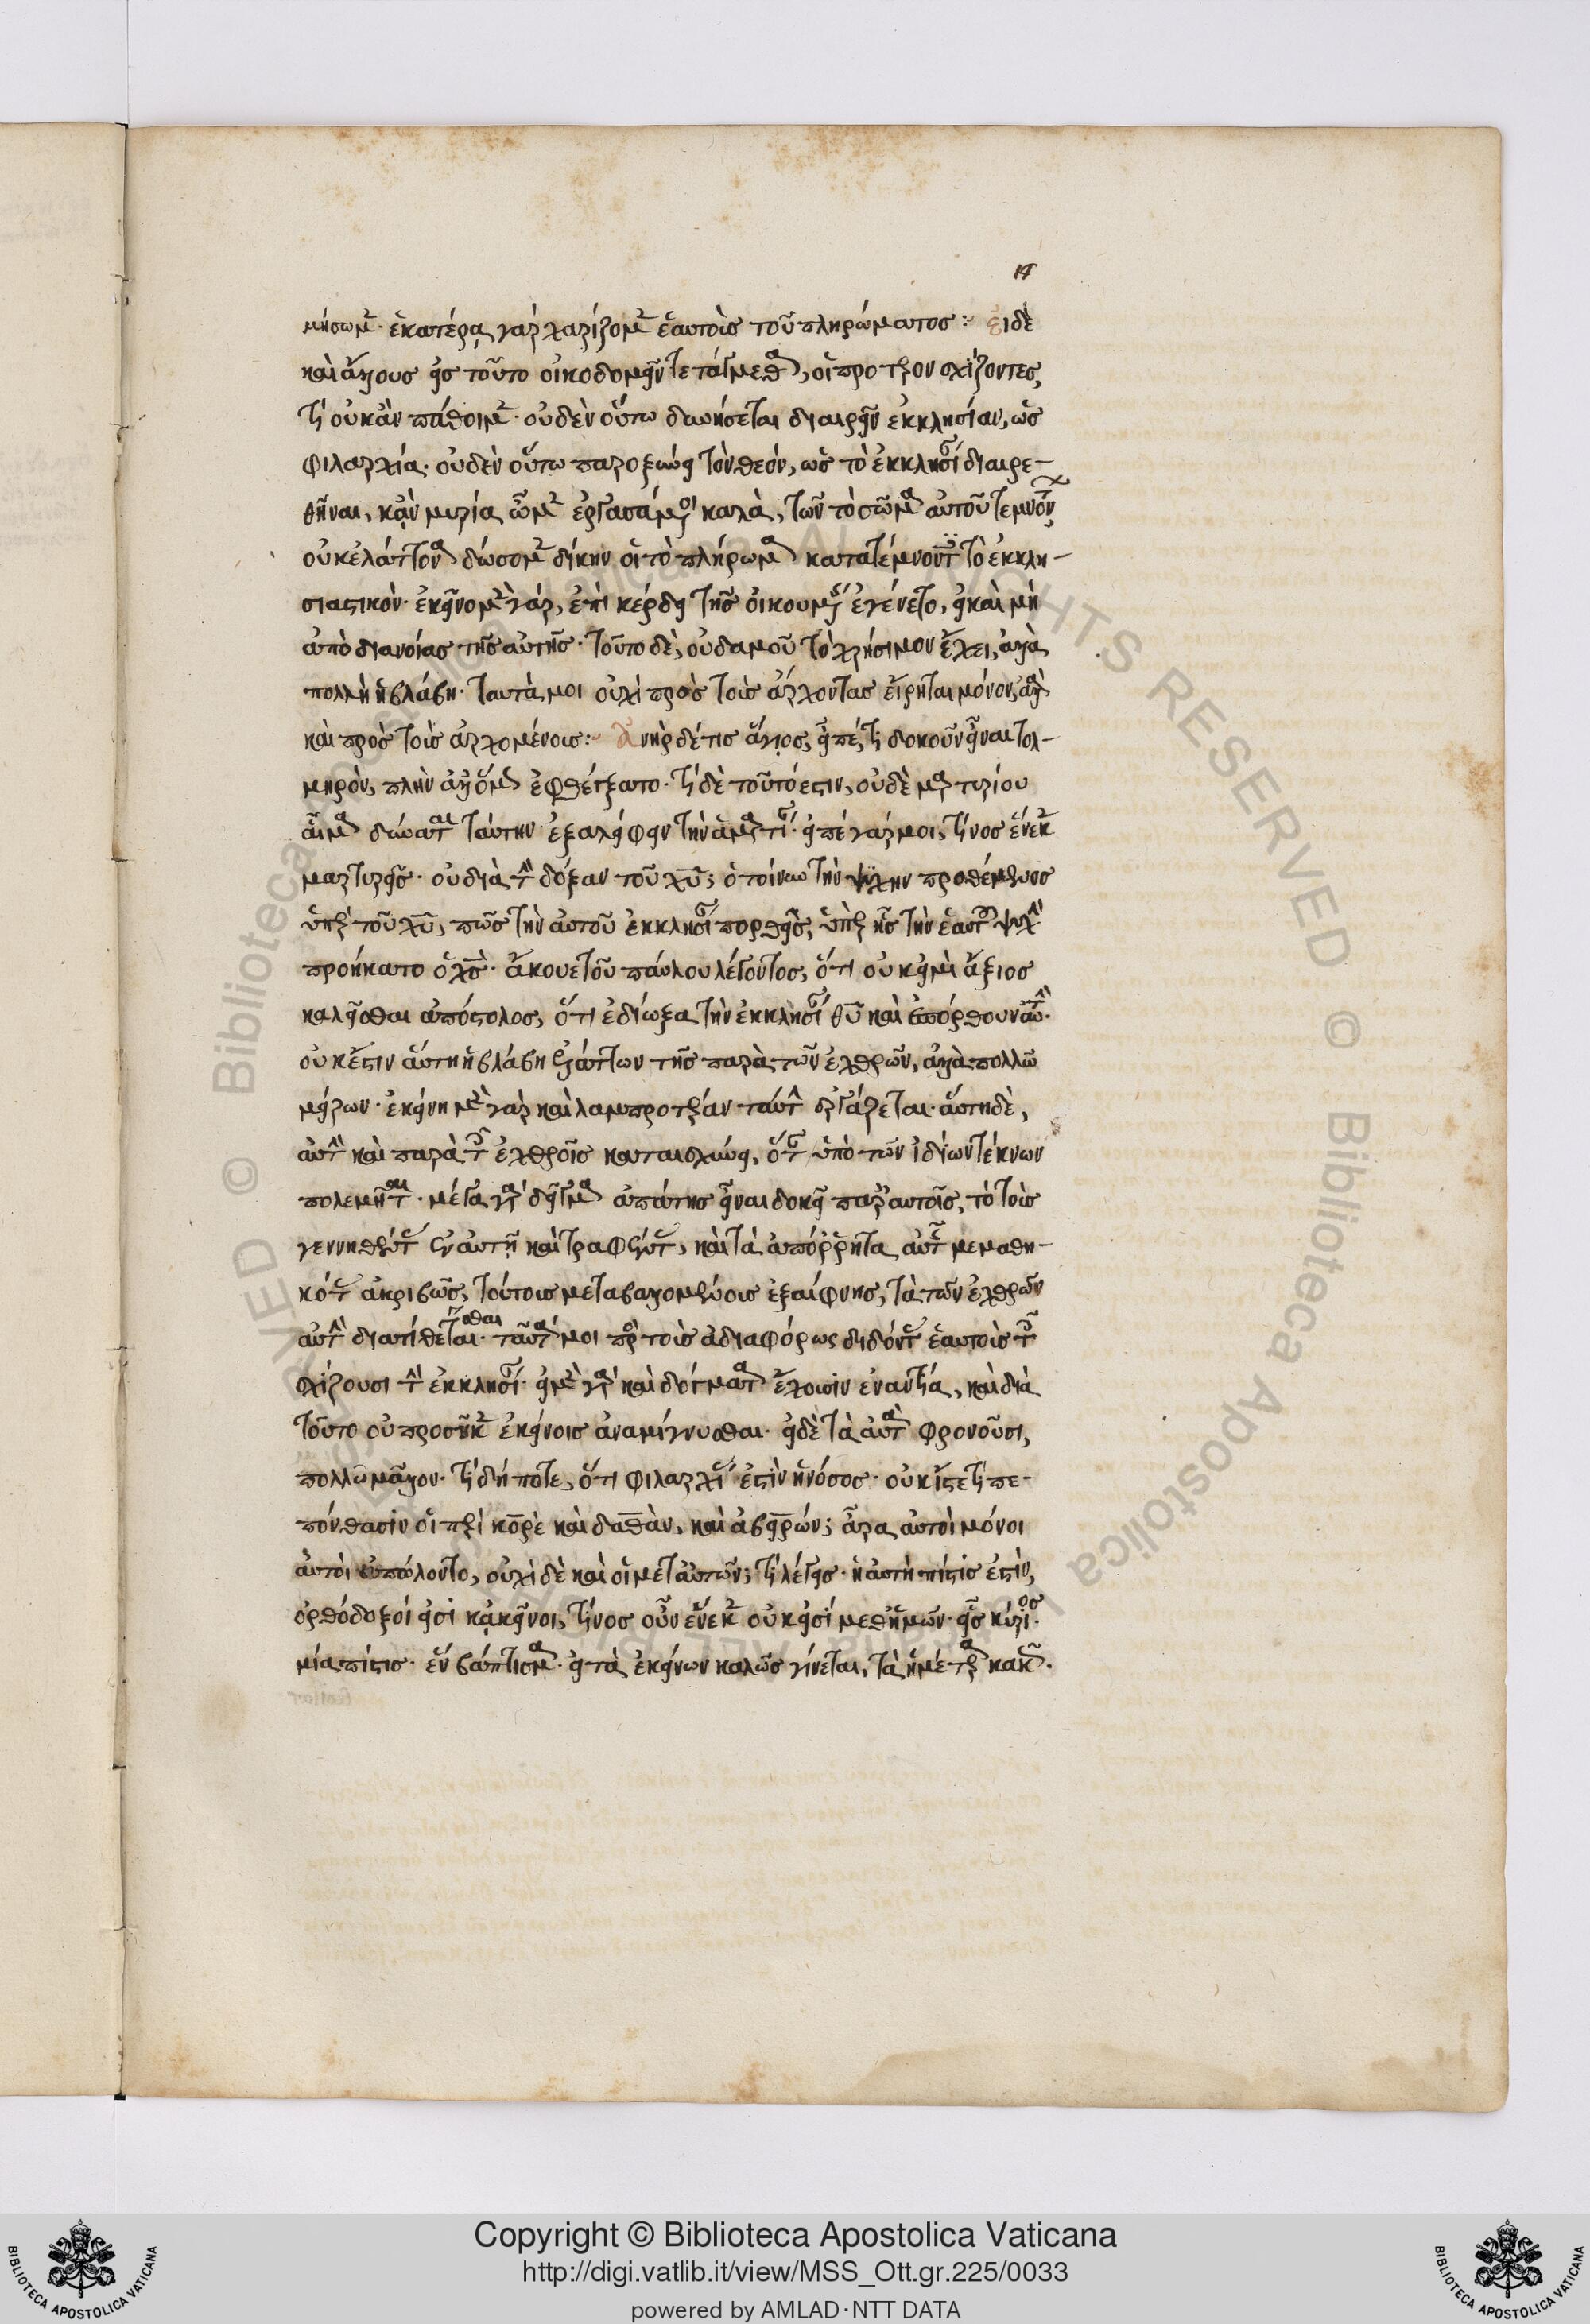 17
μήσωμεν· ἑκατέρα γὰρ χαρίζομεν ἑαυτοῖς τοῦ πληρώματος: εἰ δὲ
καὶ ἄλλους εἰς τοῦτο οἰκοδομεῖν τετάγμεθα, οἱ πρότερον σχίζοντες,
τί οὐκ ἂν πάθοιμεν· οὐδὲν οὕτω δυνήσεται διαιρεῖν ἐκκλησίαν, ὡς
φιλαρχία· οὐδὲν οὕτω παροξύνει τὸν θεόν, ὡς τὸ ἐκκλησίαν διαιρε-
θῆναι, κἂν μυρία ὦμεν ἐργασάμενοι καλὰ, τῶν τὸ σῶμα αὐτοῦ τεμνόντων
οὐκ ἐλάττονα δώσομεν δίκην οἱ τὸ πλήρωμα κατατέμνοντες τὸ ἐκκλη-
σιαστικόν· ἐκεῖνο μὲν γὰρ, ἐπὶ κέρδει τῆς οἰκουμένης ἐγένετο, εἰ καὶ μὴ
ἀπὸ διανοίας τῆς αὐτῆς· τοῦτο δὲ, οὐδαμοῦ τὸ χρήσιμον ἔχει, ἀλλὰ
πολλὴ ἡ βλάβη· ταῦτά μοι οὐχὶ πρὸς τοὺς ἄρχοντας εἴρηται μόνον, ἀλλὰ
καὶ πρὸς τοὺς ἀρχομένους: ἀνὴρ δέ τις ἅγιος, εἶπέ τι δοκοῦν εἶναι τολ-
μηρόν, πλὴν ἀλλ' ὅμως ἐφθέγξατο· τί δὲ τοῦτό ἐστιν, οὐδὲ μαρτυρίου
αἷμα δύναται ταύτην ἐξαλείφειν τὴν ἁμαρτίαν· εἰπὲ γάρ μοι, τίνος ἕνεκεν
μαρτυρεῖς· οὐ διὰ τὴν δόξαν τοῦ χυ; ὁ τοίνυν τὴν ψυχὴν προθέμενος
ὑπὲρ τοῦ χυ, πῶς τὴν αὐτοῦ ἐκκλησίαν πορθεῖς, ὑπὲρ ἧς τὴν ἑαυτοῦ ψυχὴν
προήκατο ὁ χς· ἄκουε τοῦ παύλου λέγοντος, ὅτι οὐκ εἰμὶ ἄξιος
καλεῖσθαι ἀπόστολος, ὅτι ἐδίωξα τὴν ἐκκλησίαν θυ καὶ ἐπόρθουν αὐτήν·
οὐκ ἔστιν αὕτη ἡ βλάβη ἐλάττων τῆς παρὰ τῶν ἐχθρῶν, ἀλλὰ πολλῶ
μείζων· ἐκείνη μὲν γὰρ καὶ λαμπροτέραν ταύτην ἐργάζεται· αὕτη δὲ,
αὐτὴν καὶ παρὰ τοῖς ἐχθροῖς καταισχύνει, ὅταν ὑπὸ τῶν ἰδίων τέκνων
πολεμῆται· μέγα γὰρ δεῖγμα ἀπάτης εἶναι δοκεῖ παρ' αὐτοῖς, τὸ τοὺς
γεννηθέντας ἐν αὐτῇ καὶ τραφέντας, καὶ τὰ ἀπόρρητα αὐτῆς μεμαθη-
κότας ἀκριβῶς, τούτους μεταβαλλομένους ἐξαίφνης, τὰ τῶν ἐχθρῶν
αὐτὴν διατίθεσθαι· ταῦτά μοι πρὸς τοὺς ἀδιαφόρως διδόντας ἑαυτοὺς τοῖς
σχίζουσι τὴν ἐκκλησίαν· εἰ μὲν γὰρ καὶ δόγματα ἔχουσιν ἐναντία, καὶ διὰ
τοῦτο οὐ προσῆκεν ἐκείνοις ἀναμίγνυσθαι· εἰ δὲ τὰ αὐτὰ φρονοῦσι,
πολλῶ μᾶλλον· τί δή ποτε, ὅτι φιλαρχίας ἐστὶν ἡ νόσος· οὐκ ἴστε τί πε-
πόνθασιν οἱ περὶ κορὲ καὶ δαθὰν, καὶ ἀβειρών; ἆρα αὐτοὶ μόνοι
αὐτοὶ ἀπώλοντο, οὐχὶ δὲ καὶ οἱ μετ' αὐτῶν; τί λέγεις· ἡ αὐτὴ πίστις ἐστὶν,
ὀρθόδοξοί εἰσι κἀκεῖνοι, τίνος οὖν ἕνεκεν οὐκ εἰσὶ μεθ' ἡμῶν· εἷς κύριος·
μία πίστις· ἓν βάπτισμα· εἰ τὰ ἐκείνων καλῶς γίνεται, τὰ ἡμέτερα κακῶς·
Copyright © Biblioteca Apostolica Vaticana
http://digi.vatlib.it/view/MSS_Ott.gr.225/0033
powered by AMLAD·NTT DATA